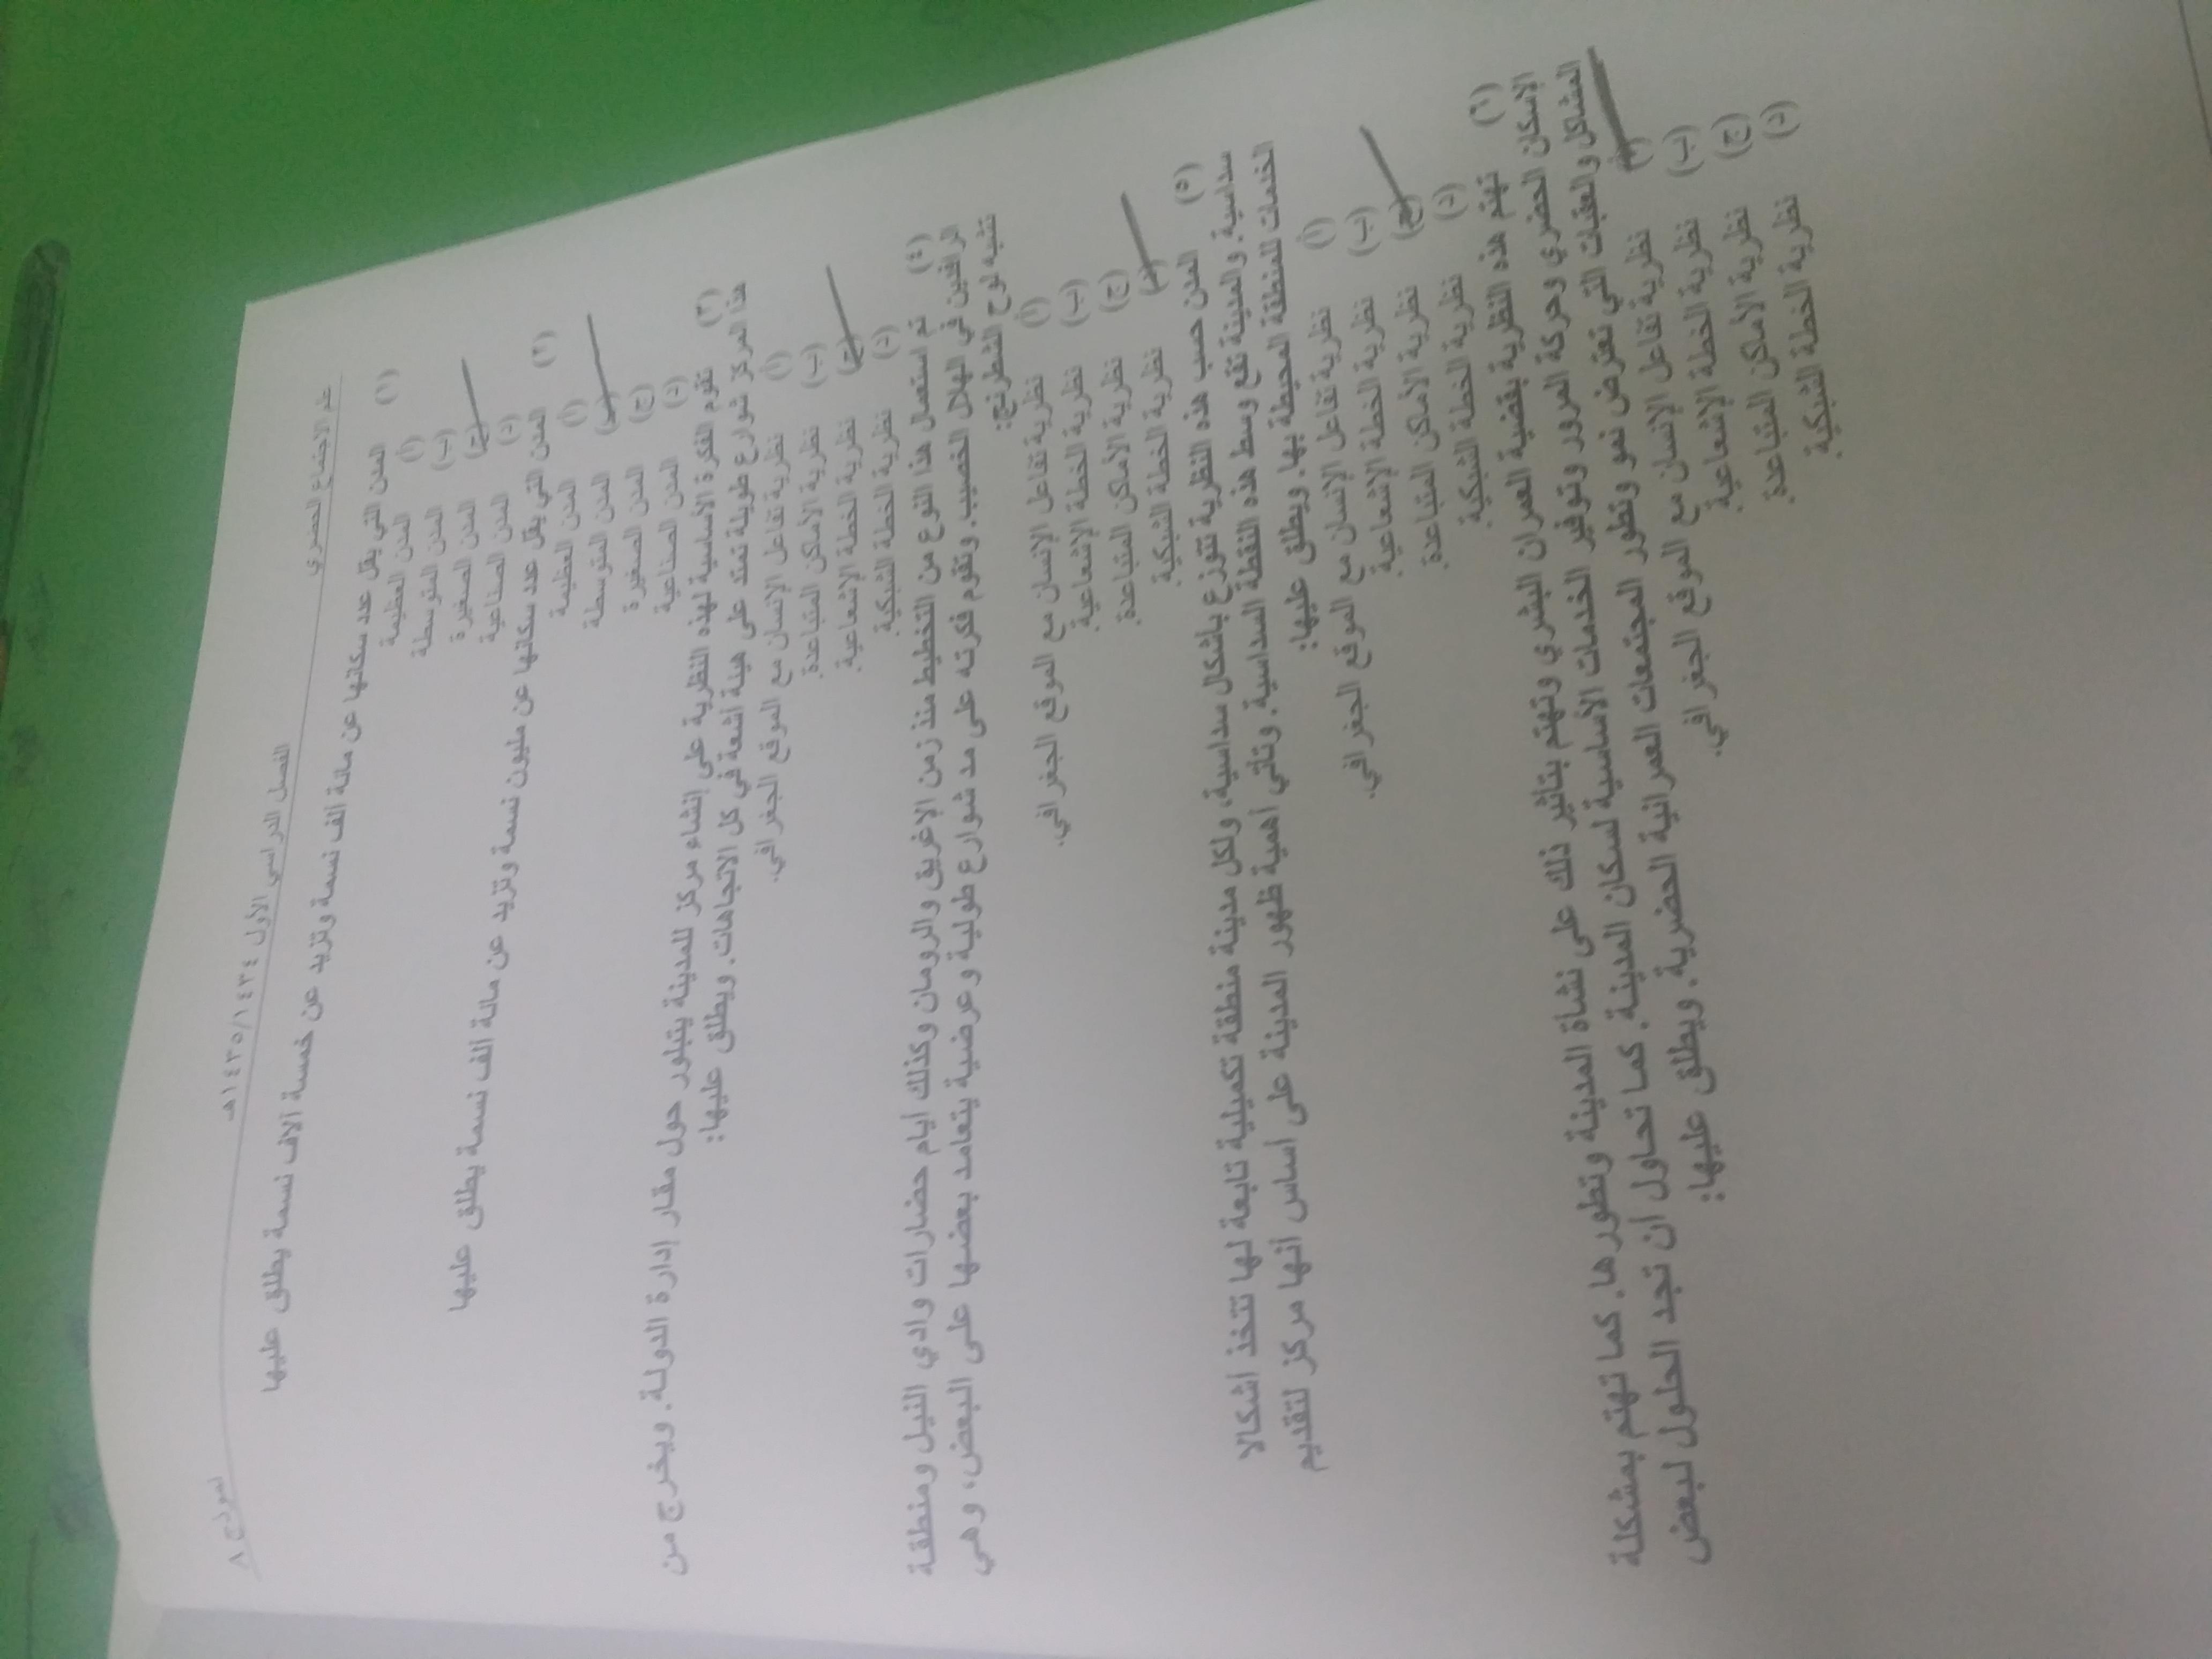 علم الاجتماع الحضري الفصل الدراسي الأول ١٤٣٥/١٤٣٤هـ نموذج ٨
(١) المدن التي يقل عدد سكانها عن مائة ألف نسمة وتزيد عن خمسة آلاف نسمة يطلق عليها
(أ) المدن العظيمة
(ب) المدن المتوسطة
(ج) المدن الصغيرة
(د) المدن الصناعية
(٢) المدن التي يقل عدد سكانها عن مليون نسمة وتزيد عن مائة ألف نسمة يطلق عليها
(أ) المدن العظيمة
(ب) المدن المتوسطة
(ج) المدن الصغيرة
(د) المدن الصناعية
(٣) تقوم الفكرة الأساسية لهذه النظرية على إنشاء مركز للمدينة يتبلور حول مقار إدارة الدولة. ويخرج من
هذا المركز شوارع طويلة تمتد على هيئة أشعة في كل الاتجاهات. ويطلق عليها:
(أ) نظرية تفاعل الإنسان مع الموقع الجغرافي.
(ب) نظرية الأماكن المتباعدة.
(ج) نظرية الخطة الإشعاعية.
(د) نظرية الخطة الشبكية.
(٤) تم استعمال هذا النوع من التخطيط منذ زمن الإغريق والرومان وكذلك أيام حضارات وادي النيل ومنطقة
الرافدين في الهلال الخصيب. وتقوم فكرته على مد شوارع طولية وعرضية يتعامد بعضها على البعض، وهي
تشبه لوح الشطرنج:
(أ) نظرية تفاعل الإنسان مع الموقع الجغرافي.
(ب) نظرية الخطة الإشعاعية.
(ج) نظرية الأماكن المتباعدة.
(د) نظرية الخطة الشبكية.
(٥) المدن حسب هذه النظرية تتوزع بأشكال سداسية، ولكل مدينة منطقة تكميلية تابعة لها تتخذ أشكالا
سداسية. والمدينة تقع وسط هذه النقطة السداسية. وتأتي أهمية ظهور المدينة على أساس أنها مركز لتقديم
الخدمات للمنطقة المحيطة بها. ويطلق عليها:
(أ) نظرية تفاعل الإنسان مع الموقع الجغرافي.
(ب) نظرية الخطة الإشعاعية.
(ج) نظرية الأماكن المتباعدة.
(د) نظرية الخطة الشبكية.
(٦) تهتم هذه النظرية بقضية العمران البشري وتهتم بتأثير ذلك على نشأة المدينة وتطورها. كما تهتم بمشكلة
الإسكان الحضري وحركة المرور وتوفير الخدمات الأساسية لسكان المدينة. كما تحاول أن تجد الحلول لبعض
المشاكل والعقبات التي تعترض نمو وتطور المجتمعات العمرانية الحضرية. ويطلق عليها:
(أ) نظرية تفاعل الإنسان مع الموقع الجغرافي.
(ب) نظرية الخطة الإشعاعية.
(ج) نظرية الأماكن المتباعدة.
(د) نظرية الخطة الشبكية.